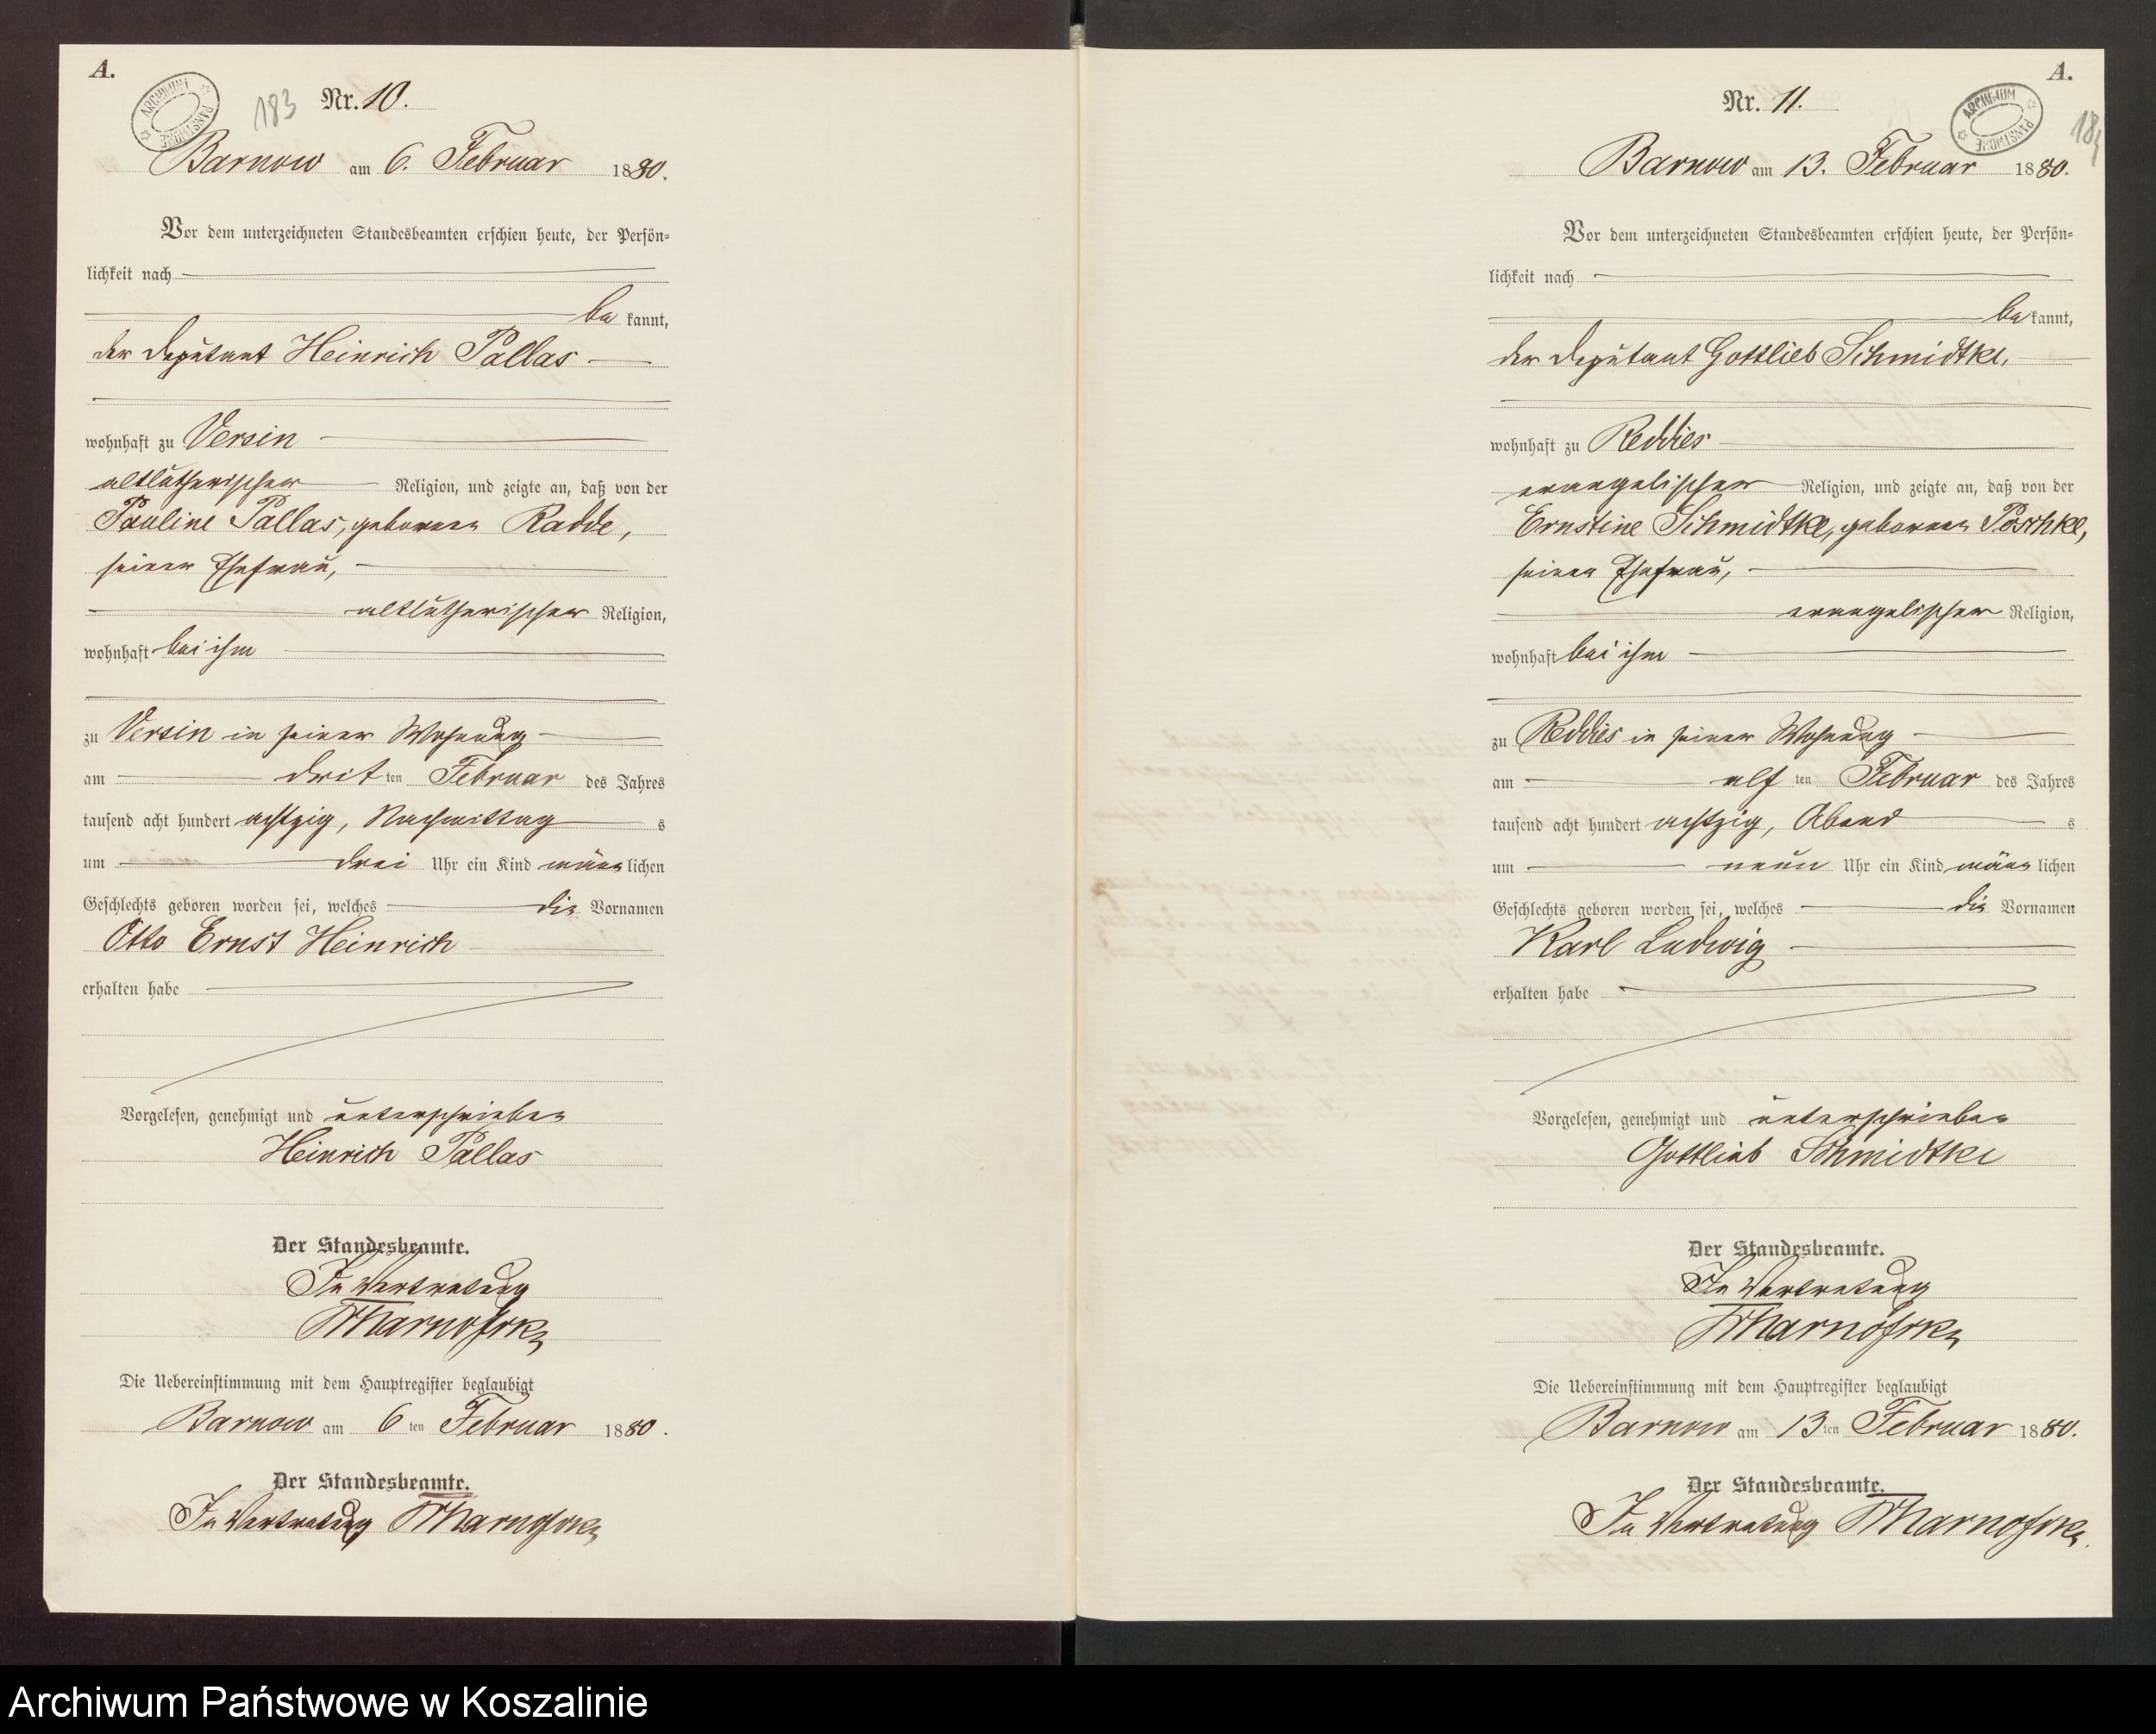 A.
ARCHIWUM PAŃSTWOWE
183
Nr. 10.
Barnow am 6. Februar 1880.
Vor dem unterzeichneten Standesbeamten erschien heute, der Persön-
lichkeit nach
be kannt,
der Deputant Heinrich Pallas
wohnhaft zu Versin
altlutherischer Religion, und zeigte an, daß von der
Pauline Pallas, geborenen Radde,
seiner Ehefrau,
altlutherischer Religion,
wohnhaft bei ihm
zu Versin in seiner Wohnung
am drit ten Februar des Jahres
tausend acht hundert achtzig, Nachmittag s
um drei Uhr ein Kind männ lichen
Geschlechts geboren worden sei, welches die Vornamen
Otto Ernst Heinrich
erhalten habe
Vorgelesen, genehmigt und unterschrieben
Heinrich Pallas
Der Standesbeamte.
In Vertretung
Die Uebereinstimmung mit dem Hauptregister beglaubigt
Barnow am 6 ten Februar 1880.
Der Standesbeamte.
In Vertretung
A.
ARCHIWUM PAŃSTWOWE
Nr. 11.
Barnow am 13. Februar 1880.
Vor dem unterzeichneten Standesbeamten erschien heute, der Persön-
lichkeit nach
be kannt,
der Deputant Gottlieb Schmidtke,
wohnhaft zu Reddies
evangelischer Religion, und zeigte an, daß von der
Ernstine Schmidtke, geborenen Pöschke,
seiner Ehefrau,
evangelischer Religion,
wohnhaft bei ihm
zu Reddies in seiner Wohnung
am elf ten Februar des Jahres
tausend acht hundert achtzig, Abend s
um neun Uhr ein Kind männ lichen
Geschlechts geboren worden sei, welches die Vornamen
Karl Ludwig
erhalten habe
Vorgelesen, genehmigt und unterschrieben
Gottlieb Schmidtke
Der Standesbeamte.
In Vertretung
Die Uebereinstimmung mit dem Hauptregister beglaubigt
Barnow am 13 ten Februar 1880.
Der Standesbeamte.
In Vertretung
Archiwum Państwowe w Koszalinie